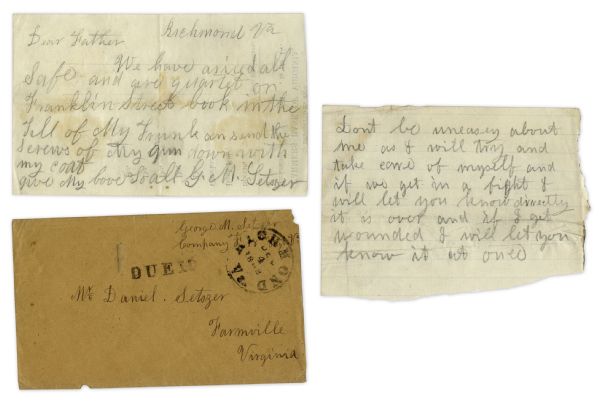 Richmond Va
Dear Father
We have arived all
Safe and are quartet on
Franklin Street look in the
Till of My Trunk an send the
Screws of My gun down with
my coat
give My love to all G M Setzer
Dont be uneasey about
me as I will try and
take care of myself and
if we get in a fight I
will let you know directly
it is over and if I get
wounded I will let you
know it at once
George M. Setzer
Company
RICHMOND Va
OCT
4
DUE 10
Mr Daniel. Setzer
Farmville
Virginia